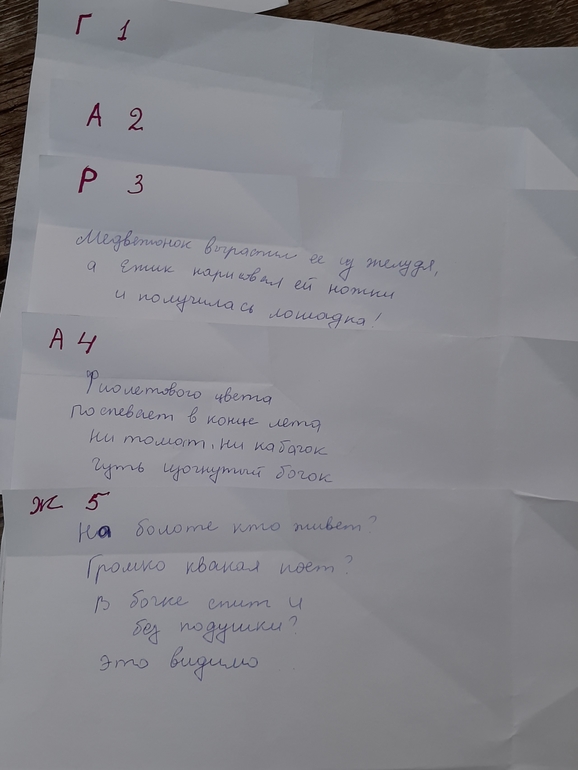 Г 1
А 2
Р 3
Медвежонок вырастил ее из желудя,
а Ежик нарисовал ей ножки
и получилась лошадка!
А 4
Фиолетового цвета
Поспевает в конце лета
Ни томат, ни кабачок
Чуть изогнутый бочок
Ж 5
На болоте кто живет?
Громко квакая поет?
В бочке спит и
без подушки?
Это видимо